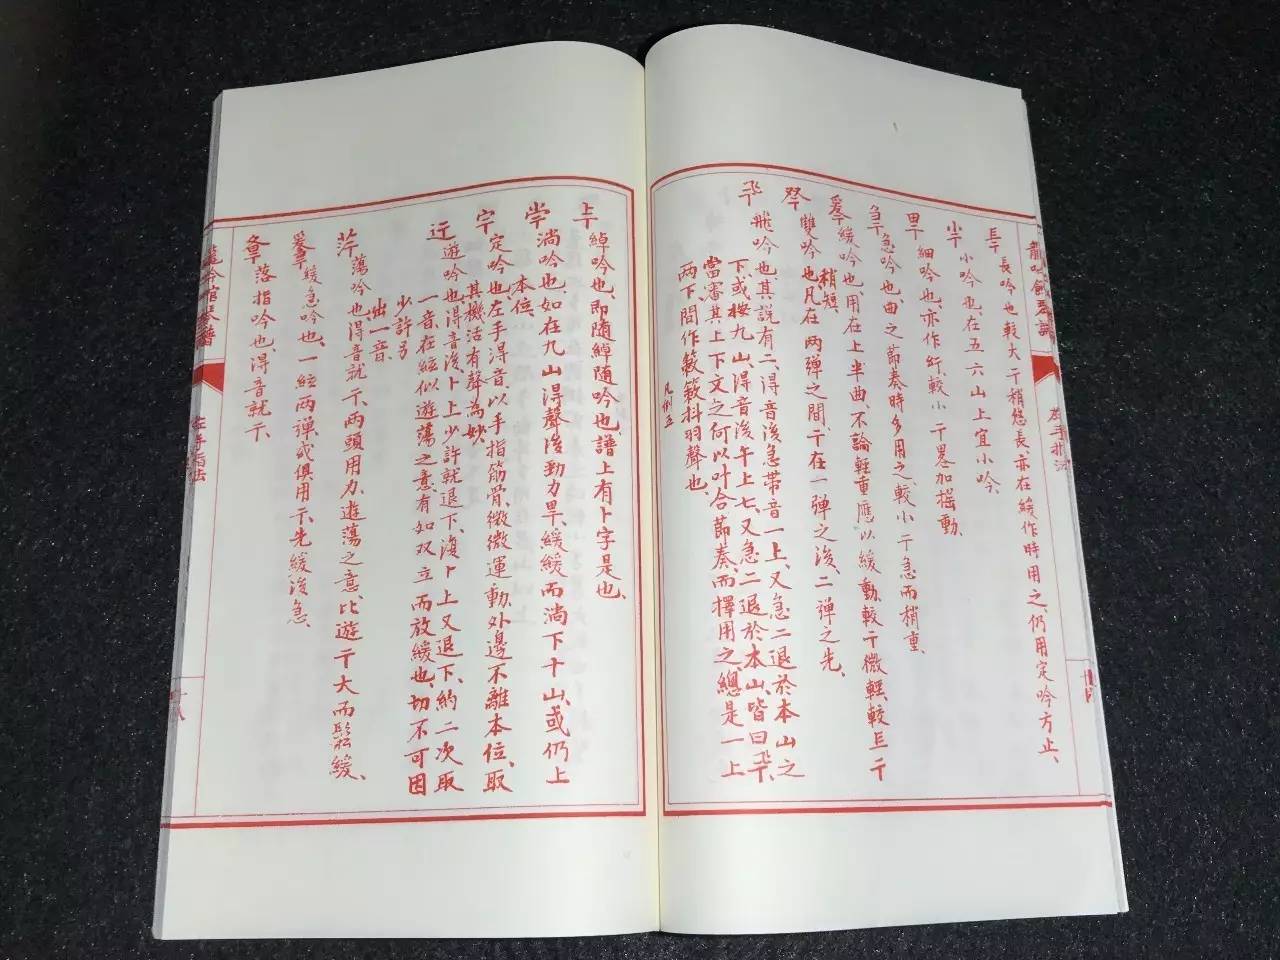 長吟也較大丅稍悠長、亦在緩作時用之、仍用定吟方止、
小吟也、在五六山上宜小吟、
細吟也、亦作䊵、較小丅畧加搖動、
急吟也、曲之節奏時多用之、較小丅急而稍重、
緩吟也用在上半曲、不論輕重應以緩動、較丅微輕、較镸丅
稍短
雙吟也凡在两彈之間、丅在一彈之後、二彈之先、
飛吟也其説有二、得音後急带音一上、又急二退於本山之
下、或按九山得音後午上七、又急二退於本山、皆曰
當審其上下文之何以叶合節奏、而擇用之、總是一上
两下、間作簌簌抖羽聲也、
凡例五
綽吟也、即随綽随吟也、譜上有卜字是也、
淌吟也、如在九山得聲後勁力早、緩緩而淌下十山、或仍上
本位、
定吟也左手得音、以手指筋骨、微微運動、外邊不離本位、取
其機活有聲為妙、
遊吟也得音後卜上少許就退下、復卜上又退下、約二次取
一音、在絃似遊蕩之意有如双立而放緩也、切不可因
少許另
出一音
蕩吟也得音就丅、两頭用力、遊蕩之意、比遊丅大而鬆緩、
緩急吟也、一絃两彈或俱用丅、先緩後急、
落指吟也、得音就丅、
左手指法
左手指法